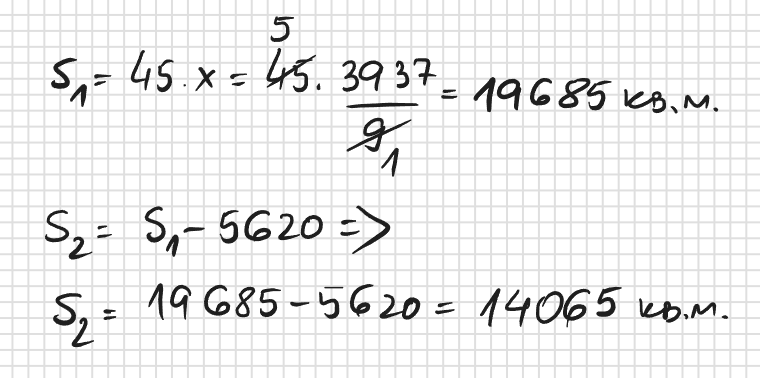 S₁ = 45 · x = 45 · 3937/9 = 19685 кв.м.
5
1
S₂ = S₁ - 5620 =>
S₂ = 19685 - 5620 = 14065 кв.м.